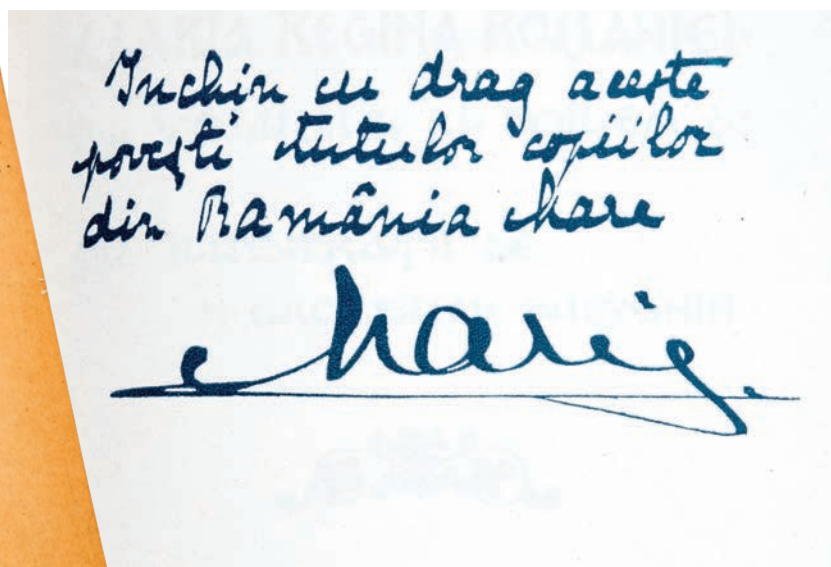 Inchin cu drag aceste
povești tutulor copiilor
din România Mare
Maria